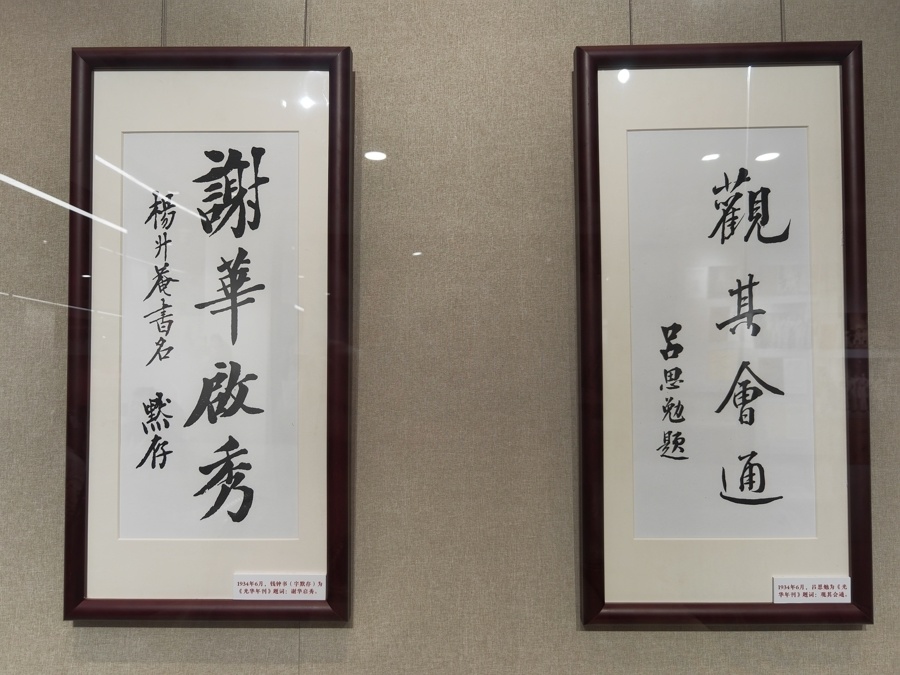 謝華啟秀
楊升菴書名 默存
1934年6月,钱钟书(字默存)为
《光华年刊》题词:谢华启秀。
觀其會通
吕思勉題
1934年6月,吕思勉为《光
华年刊》题词:观其会通。